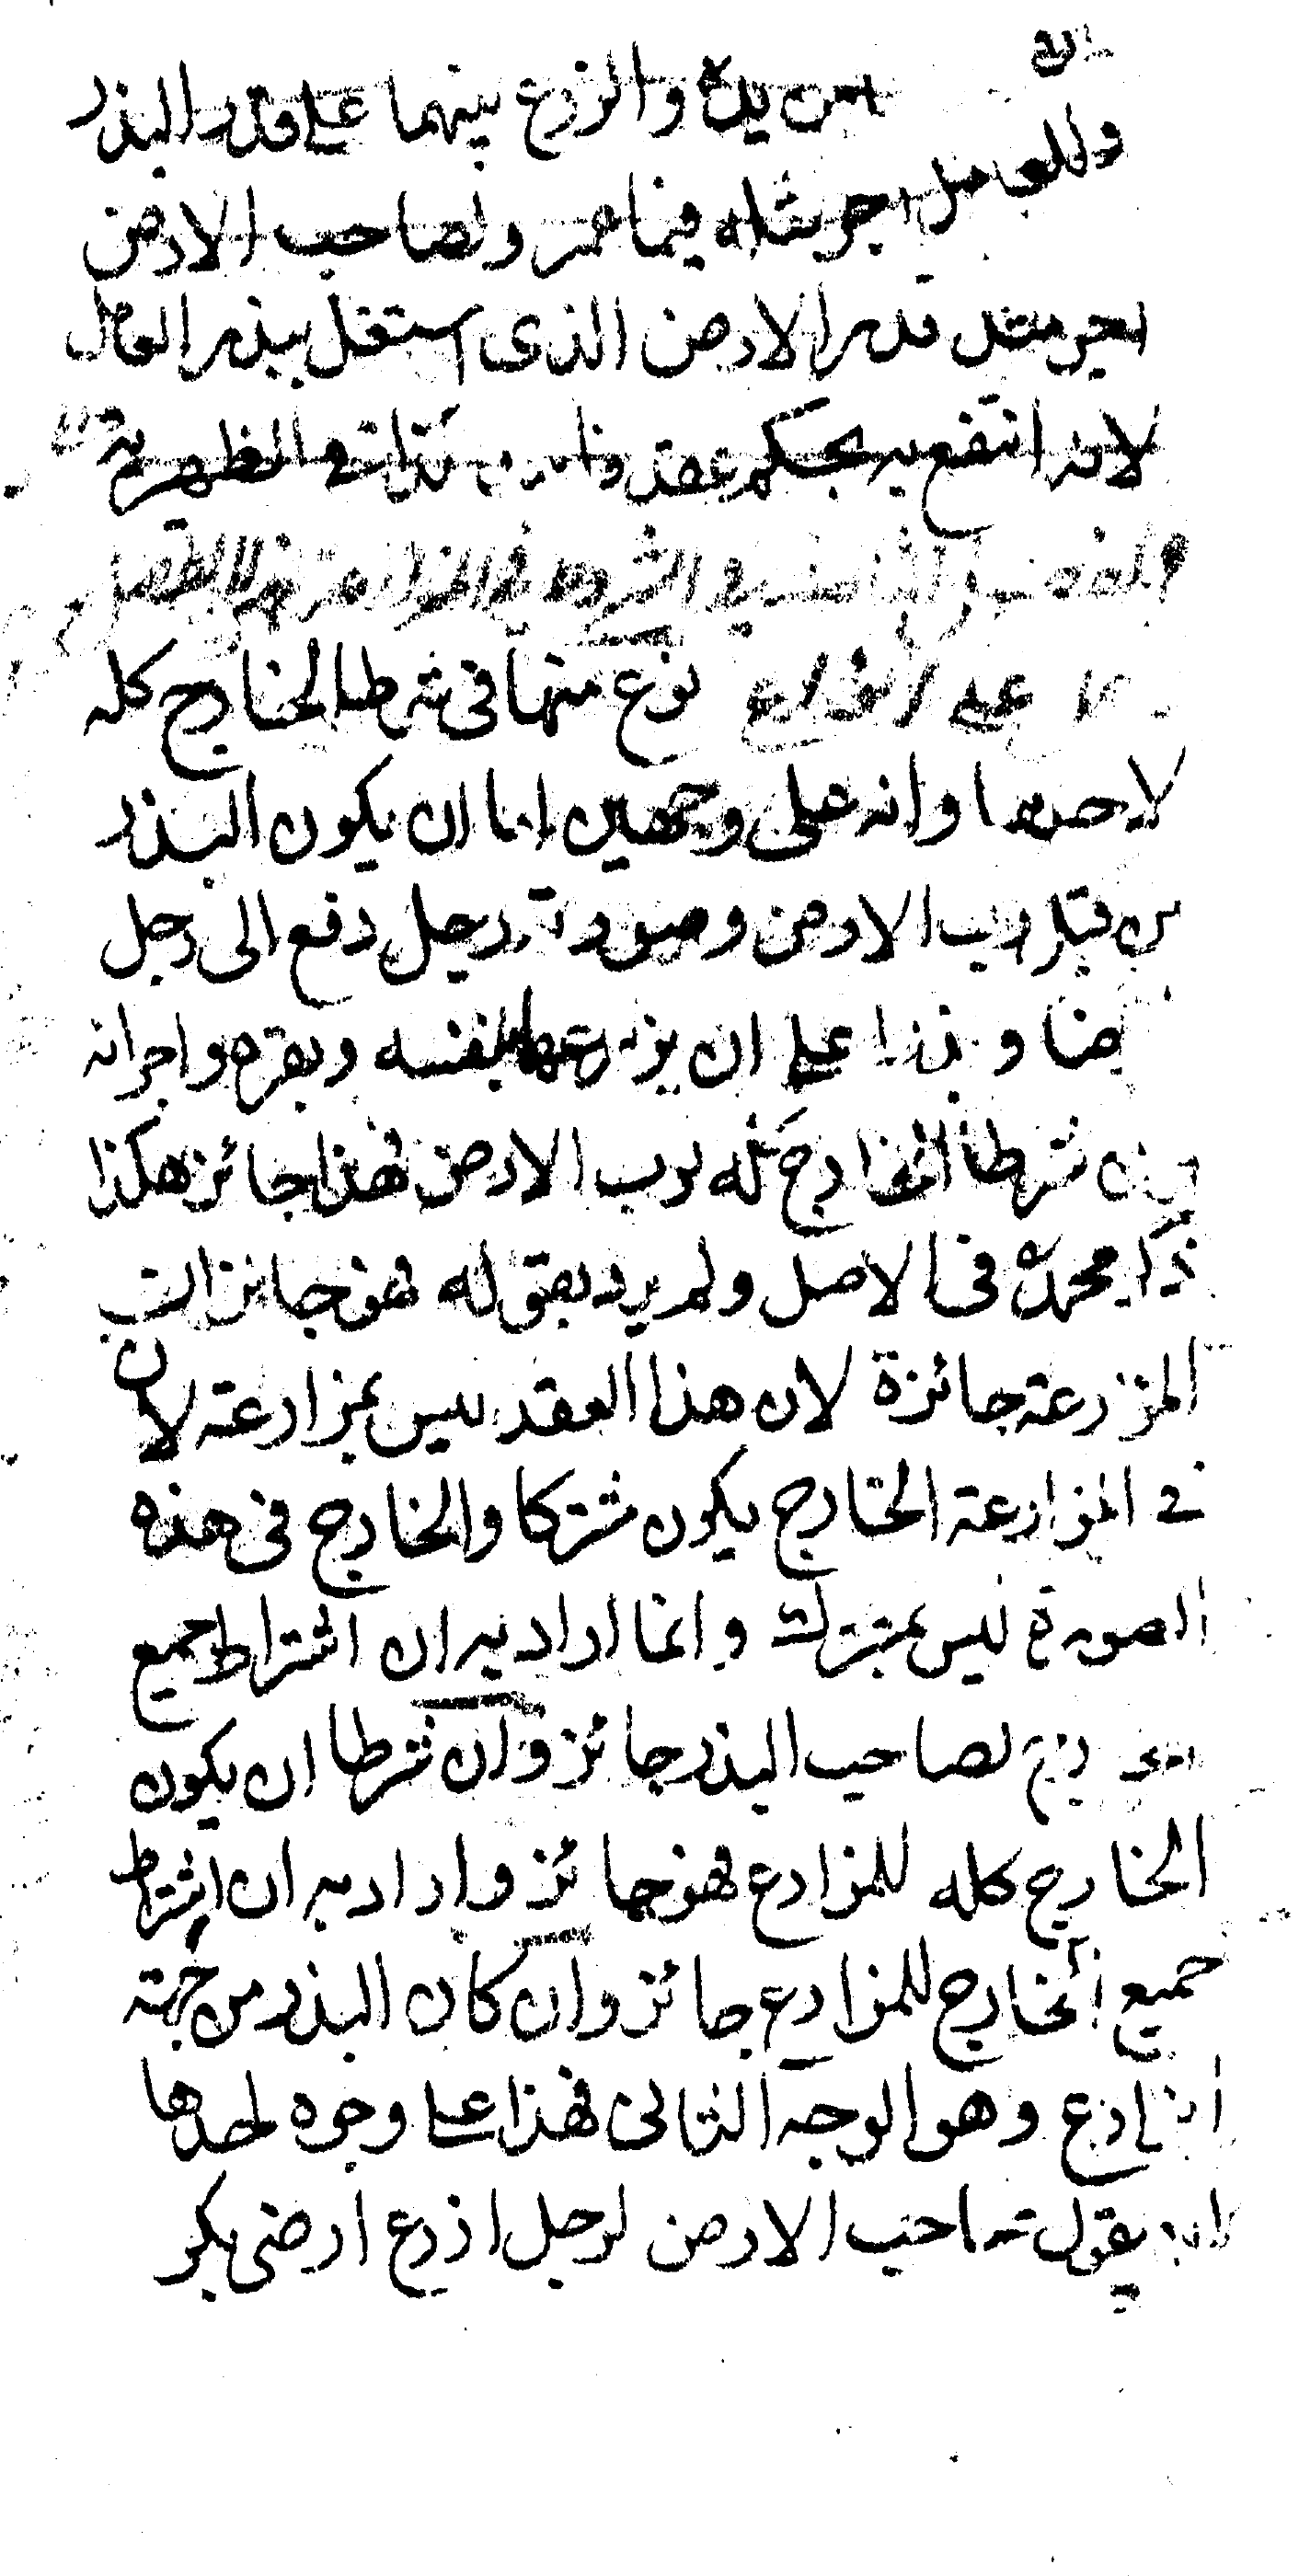 من يده والزرع بينهما على قدر البذر
وللعامل اجر مثله فيما عمر ولصاحب الارض
اجر مثل قدر الارض الذى استغل ببذر العامل
لانه انتفع به بحكم عقد فاسد كذا فى الظهيرية
الفصل فى الشروط فى المزارعة هذا الفصل
على انواع نوع منها فى شرط الخارج كله
لاحدهما وانه على وجهين اما ان يكون البذر
من قبل رب الارض وصورته رجل دفع الى رجل
ارضا وبذرا على ان يزرعها بنفسه وبقره واجرائه
شرطا الخارج كله لرب الارض فهذا جائز هكذا
ذكر محمد فى الاصل ولم يرد بقوله فهو جائز ان
المزرعة جائزة لان هذا العقد ليس بمزارعة لان
فى المزارعة الخارج يكون مشتركا والخارج فى هذه
الصورة ليس بمشترك وانما اراد به ان اشتراط جميع
الخارج لصاحب البذر جائز وان شرطا ان يكون
الخارج كله للمزارع فهو جائز واراد به ان اشتراط
جميع الخارج للمزارع جائز وان كان البذر من جهة
المزارع وهو الوجه الثانى فهذا على وجوه احدها
ان يقول صاحب الارض لرجل ازرع ارضى بكر